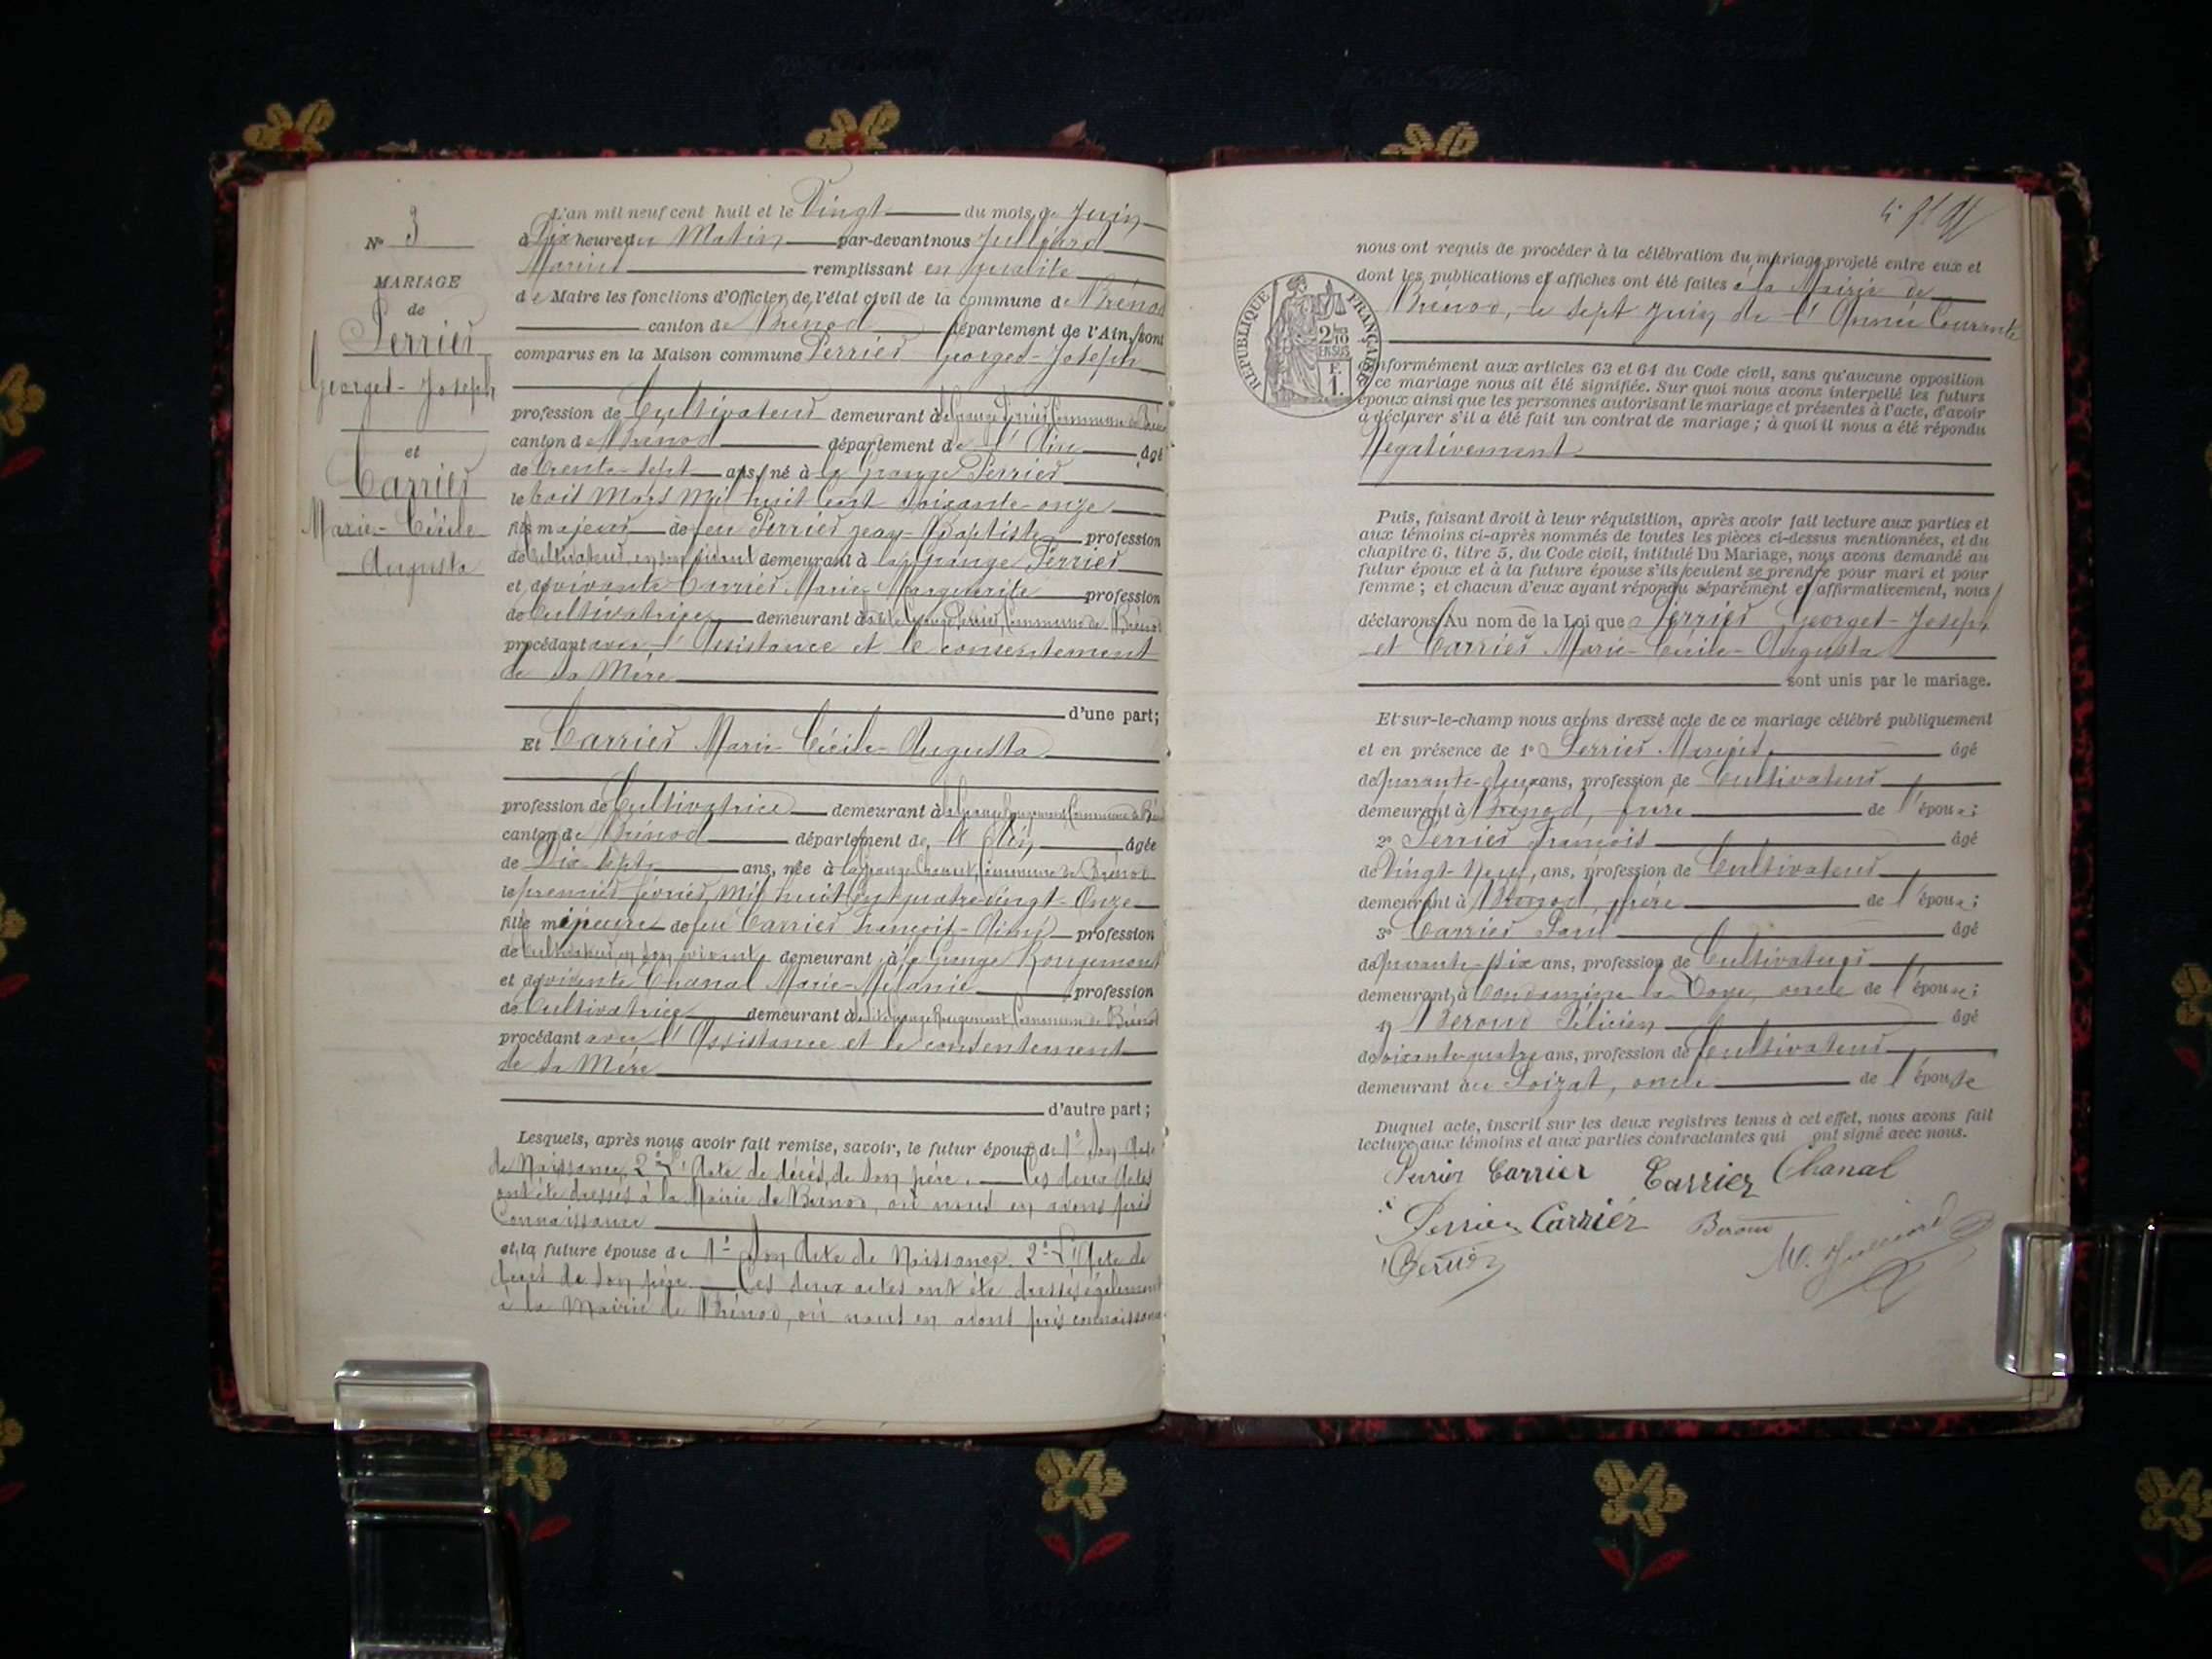 N° 3
MARIAGE
de
Perrier
Georges-Joseph
et
Carrier
Marie-Cécile
Augusta
L'an mil neuf cent huit et le Vingt du mois de Juin
à Dix heures du Matin par-devant nous Julliard
Marius remplissant en qualité
de Maire les fonctions d'Officier de l'état civil de la commune de Brénod
canton de Brénod département de l'Ain, sont
comparus en la Maison commune Perrier Georges-Joseph
profession de Cultivateur demeurant à la Grange Perrier, Commune de Brénod
canton de Brénod département de l'Ain âgé
de trente-sept ans, né à la Grange Perrier
le trois Mars mil huit cent soixante-onze
fils majeur de feu Perrier Jean-Baptiste profession
de Cultivateur en son vivant demeurant à la Grange Perrier
et de vivante Carrier Marie Marguerite profession
de Cultivatrice demeurant à dite Grange Perrier, Commune de Brénod
procédant avec l'Assistance et le consentement
de sa Mère
d'une part;
Et Carrier Marie Cécile-Augusta
profession de Cultivatrice demeurant à la Grange Rougemont Commune de Brénod
canton de Brénod département de l'Ain âgée
de Dix-sept ans, née à la Grange Commune de Brénod
le premier février mil huit cent quatre-vingt-Onze
fille mineure de feu Carrier François-Aimé profession
de Cultivateur en son vivant demeurant à la Grange Rougemont
et de vivante Chanal Marie-Mélanie profession
de Cultivatrice demeurant à dite Grange Rougemont Commune de Brénod
procédant avec l'Assistance et le consentement
de sa Mère
d'autre part;
Lesquels, après nous avoir fait remise, savoir, le futur époux de 1° Son Acte
de Naissance, 2° L'Acte de décès de son père. Ces deux Actes
ont été dressés à la Mairie de Brénod, où nous en avons pris
Connaissance
et la future épouse de 1° Son Acte de Naissance. 2° L'Acte de
décès de son père. Ces deux actes ont été dressés également
à la Mairie de Brénod, où nous en avons pris connaissance
nous ont requis de procéder à la célébration du mariage projeté entre eux et
dont les publications et affiches ont été faites à la Mairie de
Brénod, le sept Juin de l'Année Courante
RÉPUBLIQUE FRANÇAISE
2/10
EN SUS
F.
1.
conformément aux articles 63 et 64 du Code civil, sans qu'aucune opposition
à ce mariage nous ait été signifiée. Sur quoi nous avons interpellé les futurs
époux ainsi que les personnes autorisant le mariage et présentes à l'acte, d'avoir
à déclarer s'il a été fait un contrat de mariage; à quoi il nous a été répondu
Négativement
Puis, faisant droit à leur réquisition, après avoir fait lecture aux parties et
aux témoins ci-après nommés de toutes les pièces ci-dessus mentionnées, et du
chapitre 6, titre 5, du Code civil, intitulé Du Mariage, nous avons demandé au
futur époux et à la future épouse s'ils veulent se prendre pour mari et pour
femme; et chacun d'eux ayant répondu séparément et affirmativement, nous
déclarons Au nom de la Loi que Perrier Georges-Joseph
et Carrier Marie-Cécile-Augusta
sont unis par le mariage.
Et sur-le-champ nous avons dressé acte de ce mariage célébré publiquement
et en présence de 1° Perrier Marius âgé
de quarante-deux ans, profession de Cultivateur
demeurant à Brénod, frère de l'époux;
2° Perrier François âgé
de Vingt-Neuf ans, profession de Cultivateur
demeurant à Brénod, frère de l'époux;
3° Carrier Paul âgé
de quarante-six ans, profession de Cultivateur
demeurant à Condamine la Doye, oncle de l'épouse;
4° Beroud Félicien âgé
de soixante-quatre ans, profession de Cultivateur
demeurant au Poizat, oncle de l'épouse
Duquel acte, inscrit sur les deux registres tenus à cet effet, nous avons fait
lecture aux témoins et aux parties contractantes qui ont signé avec nous.
Perrier Carrier Carrier Chanal
Perrier Carrier Beroud M. Julliard
Perrier